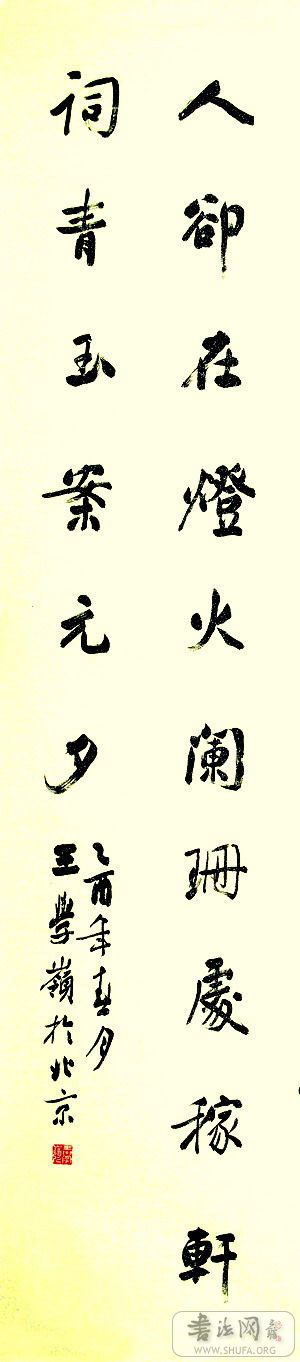 人卻在燈火闌珊處稼軒
詞青玉案元夕
乙酉年春月
王學嶺於北京
书法网
WWW.SHUFA.ORG